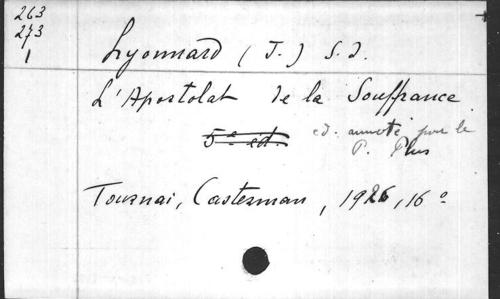 263
273
1
Lyonnard (J.) S.J.
L'Apostolat de la Souffrance
5e éd. ed. annoté par le
P. Plus
Tournai, Casterman, 1926, 16°